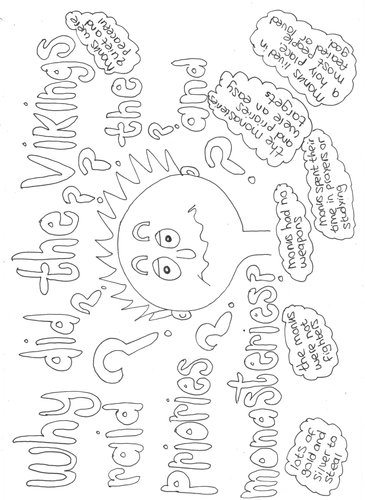 Why did the Vikings
raid ? ? ? ? the
Priories ? ? and
monasteries?
monks were
quiet and
peaceful
the monasteries
and priories
were an easy
targets
monks lived in
a holy place,
most people
feared or loved
god
monks spent their
time in prayers or
studying
monks had no
weapons
the monks
were not
fighters
lots of
gold and
silver to
steal